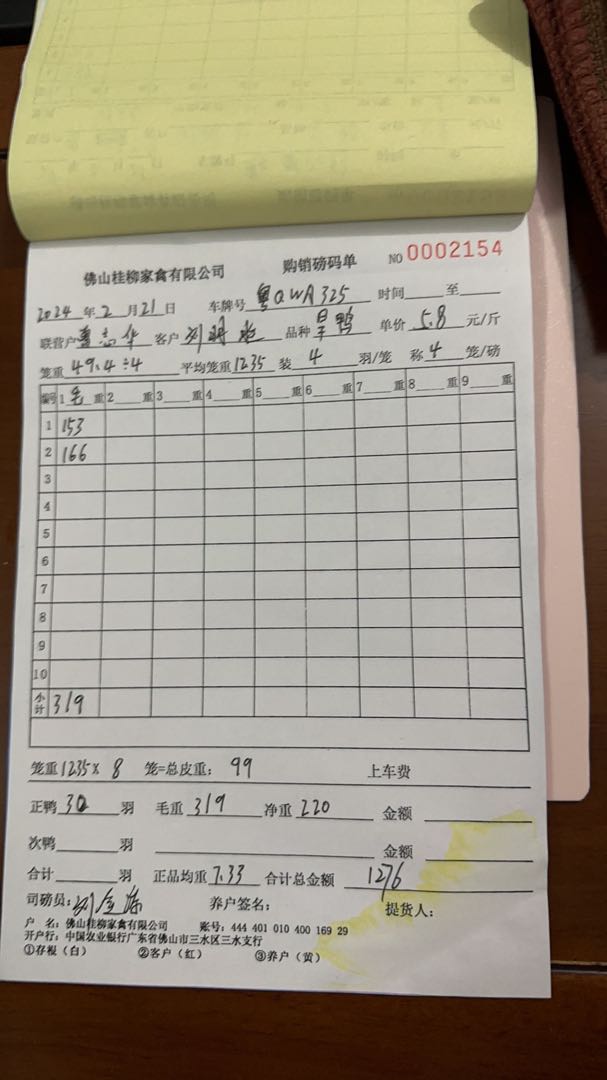 佛山桂柳家禽有限公司 购销磅码单 NO 0002154
2024年2月21日 车牌号 粤QWA325 时间 至
联营户 志华 客户 刘明 品种 鸭 单价 5.8 元/斤
笼重 49.4÷4 平均笼重 1235 装 4 羽/笼 称 4 笼/磅
编号 1 毛 重 2 重 3 重 4 重 5 重 6 重 7 重 8 重 9 重
1 153
2 166
3
4
5
6
7
8
9
10
小计 319
笼重 1235× 8 笼=总皮重: 99 上车费
正鸭 30 羽 毛重 319 净重 220 金额
次鸭 羽 金额
合计 羽 正品均重 7.33 合计总金额 1276
司磅员: 刘金 养户签名: 提货人:
户 名: 佛山桂柳家禽有限公司 账号: 444 401 010 400 169 29
开户行: 中国农业银行广东省佛山市三水区三水支行
①存根(白) ②客户(红) ③养户(黄)